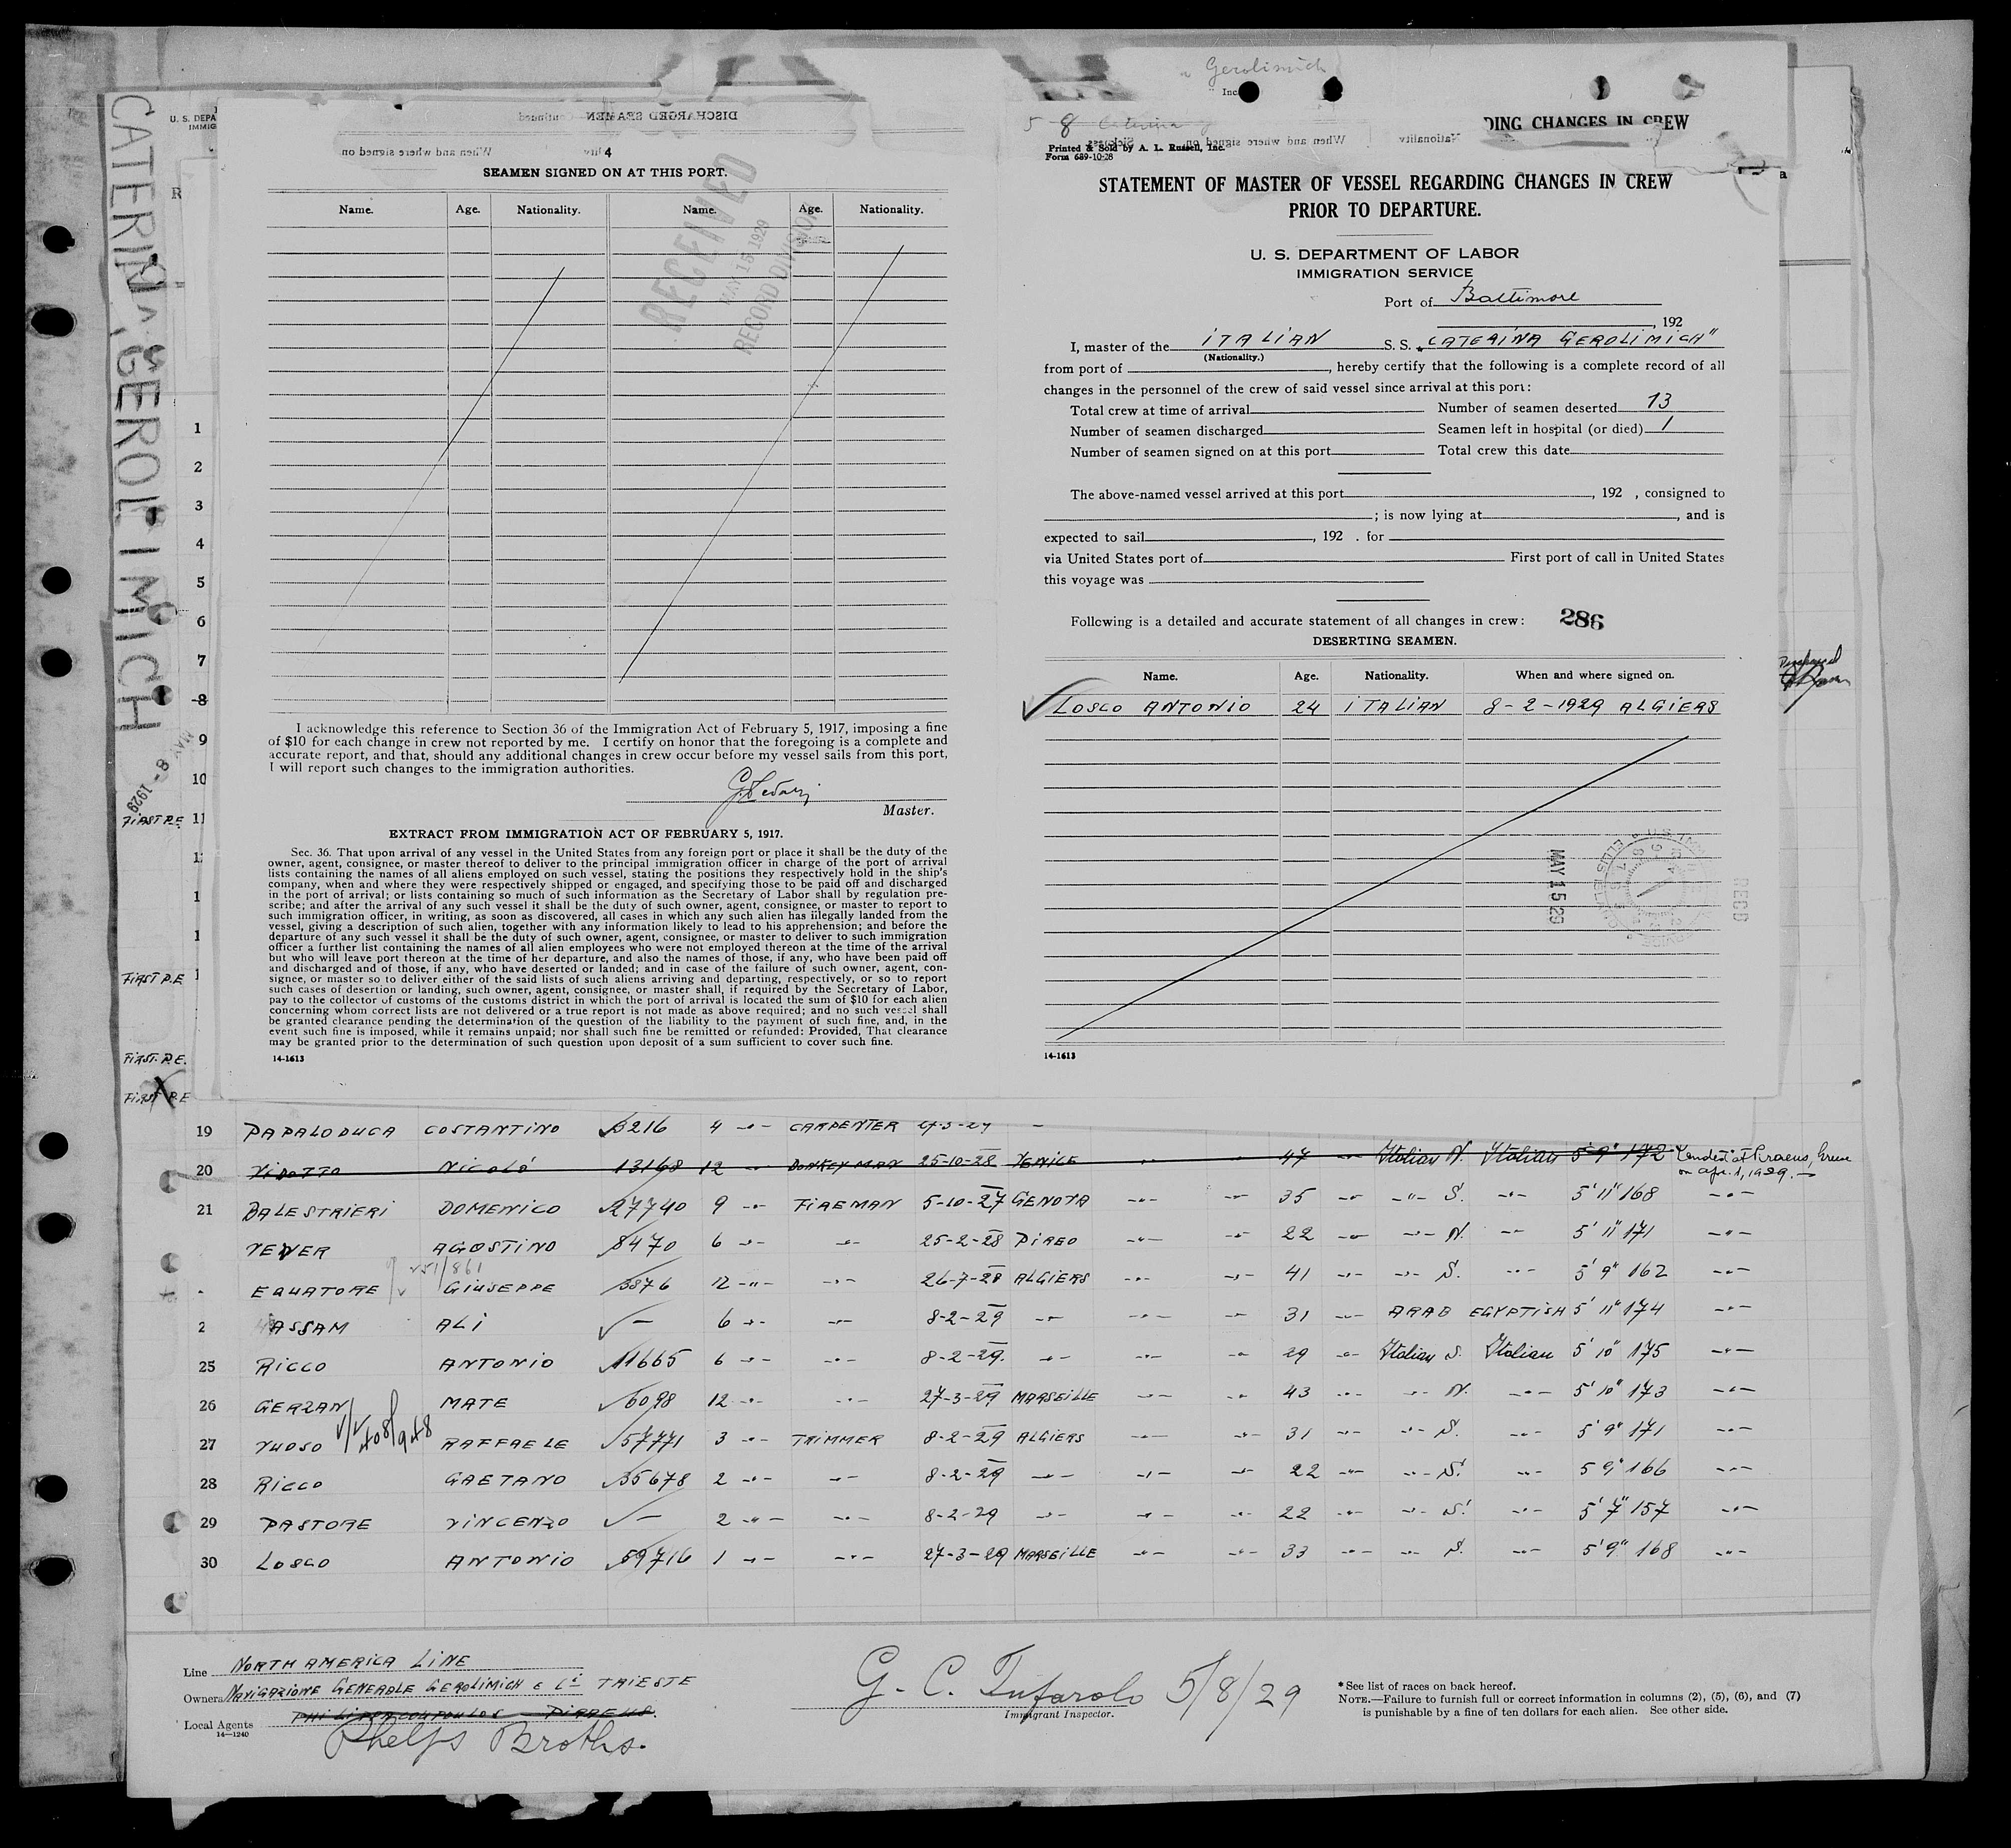 CATERINA GEROLIMICH
MAY 8 - 1929
U. S. DEPA
IMMIG
R
1
2
3
4
5
6
7
8
9
10
11
FIRST P.E.
FIRST P.E
FIRST. P.E.
FIRST P.E
DISCHARGED SEAMEN Continued
When and where signed on
4
SEAMEN SIGNED ON AT THIS PORT.
Name. Age. Nationality. Name. Age. Nationality.
RECEIVED
MAY 15 1929
RECORD DIVISION
I acknowledge this reference to Section 36 of the Immigration Act of February 5, 1917, imposing a fine
of $10 for each change in crew not reported by me. I certify on honor that the foregoing is a complete and
accurate report, and that, should any additional changes in crew occur before my vessel sails from this port,
I will report such changes to the immigration authorities.
Master.
EXTRACT FROM IMMIGRATION ACT OF FEBRUARY 5, 1917.
Sec. 36. That upon arrival of any vessel in the United States from any foreign port or place it shall be the duty of the
owner, agent, consignee, or master thereof to deliver to the principal immigration officer in charge of the port of arrival
lists containing the names of all aliens employed on such vessel, stating the positions they respectively hold in the ship's
company, when and where they were respectively shipped or engaged, and specifying those to be paid off and discharged
in the port of arrival; or lists containing so much of such information as the Secretary of Labor shall by regulation pre-
scribe; and after the arrival of any such vessel it shall be the duty of such owner, agent, consignee, or master to report to
such immigration officer, in writing, as soon as discovered, all cases in which any such alien has illegally landed from the
vessel, giving a description of such alien, together with any information likely to lead to his apprehension; and before the
departure of any such vessel it shall be the duty of such owner, agent, consignee, or master to deliver to such immigration
officer a further list containing the names of all alien employees who were not employed thereon at the time of the arrival
but who will leave port thereon at the time of her departure, and also the names of those, if any, who have been paid off
and discharged and of those, if any, who have deserted or landed; and in case of the failure of such owner, agent, con-
signee, or master so to deliver either of the said lists of such aliens arriving and departing, respectively, or so to report
such cases of desertion or landing, such owner, agent, consignee, or master shall, if required by the Secretary of Labor,
pay to the collector of customs of the customs district in which the port of arrival is located the sum of $10 for each alien
concerning whom correct lists are not delivered or a true report is not made as above required; and no such vessel shall
be granted clearance pending the determination of the question of the liability to the payment of such fine, and, in the
event such fine is imposed, while it remains unpaid; nor shall such fine be remitted or refunded: Provided, That clearance
may be granted prior to the determination of such question upon deposit of a sum sufficient to cover such fine.
14-1613
Gerolimich
Inc
5 8 Caterina
DING CHANGES IN CREW
When and where signed on Nationality
Printed & Sold by A. L. Russell, Inc.
Form 689-10-28
STATEMENT OF MASTER OF VESSEL REGARDING CHANGES IN CREW
PRIOR TO DEPARTURE.
U. S. DEPARTMENT OF LABOR
IMMIGRATION SERVICE
Port of Baltimore
, 192
I, master of the ITALIAN S. S. "CATERINA GEROLIMICH"
(Nationality.)
from port of , hereby certify that the following is a complete record of all
changes in the personnel of the crew of said vessel since arrival at this port:
Total crew at time of arrival Number of seamen deserted 13
Number of seamen discharged Seamen left in hospital (or died) 1
Number of seamen signed on at this port Total crew this date
The above-named vessel arrived at this port , 192 , consigned to
; is now lying at , and is
expected to sail , 192 . for
via United States port of First port of call in United States
this voyage was
Following is a detailed and accurate statement of all changes in crew: 286
DESERTING SEAMEN.
Name. Age. Nationality. When and where signed on.
LOSCO ANTONIO 24 ITALIAN 8-2-1929 ALGIERS
MAY 15 29
RECD
14-1613
19 PAPALODUCA COSTANTINO 3216 4 -"- CARPENTER
20 VIDOTTO NICOLÓ 13168 12 DONKEYMAN 25-10-28 VENICE -"- -"- 47 -"- Italian N. Italian 5'9" 172 Landed at Piraeus, Greece
on apr. 1, 1929.
21 BALESTRIERI DOMENICO 27740 9 -"- FIREMAN 5-10-27 GENOVA -"- -"- 35 -"- -"- S. -"- 5'11" 168 -"-
VENER AGOSTINO 8470 6 -"- -"- 25-2-28 PIREO -"- -"- 22 -"- -"- N. -"- 5'11" 171 -"-
EQUATORE GIUSEPPE 3876 12 -"- -"- 26-7-28 ALGIERS -"- -"- 41 -"- -"- S. -"- 5'9" 162 -"-
2 HASSAM ALI — 6 -"- -"- 8-2-29 -"- -"- -"- 31 -"- ARAB EGYPTISH 5'11" 174 -"-
25 RICCO ANTONIO 11665 6 -"- -"- 8-2-29. -"- -"- -"- 29 -"- Italian S. Italian 5'10" 175 -"-
26 GERZAN MATE 6098 12 -"- -"- 27-3-29 MARSEILLE -"- -"- 43 -"- -"- N. -"- 5'10" 173 -"-
27 VUOSO RAFFAELE 57771 3 -"- TRIMMER 8-2-29 ALGIERS -"- -"- 31 -"- -"- S. -"- 5'9" 171 -"-
28 RICCO GAETANO 35678 2 -"- -"- 8-2-29 -"- -"- -"- 22 -"- -"- S. -"- 5 9" 166 -"-
29 PASTORE VINCENZO — 2 -"- -"- 8-2-29 -"- -"- -"- 22 -"- -"- S. -"- 5'7" 157 -"-
30 LOSCO ANTONIO 59716 1 -"- -"- 27-3-29 MARSEILLE -"- -"- 33 -"- -"- S. -"- 5'9" 168 -"-
Line NORTH AMERICA LINE
Owners NAVIGAZIONE GENERALE GEROLIMICH & Ci TRIESTE
Local Agents
14-1240
Phelps Broths.
G. C. Tufarolo 5/8/29
Immigrant Inspector.
* See list of races on back hereof.
NOTE.—Failure to furnish full or correct information in columns (2), (5), (6), and (7)
is punishable by a fine of ten dollars for each alien. See other side.